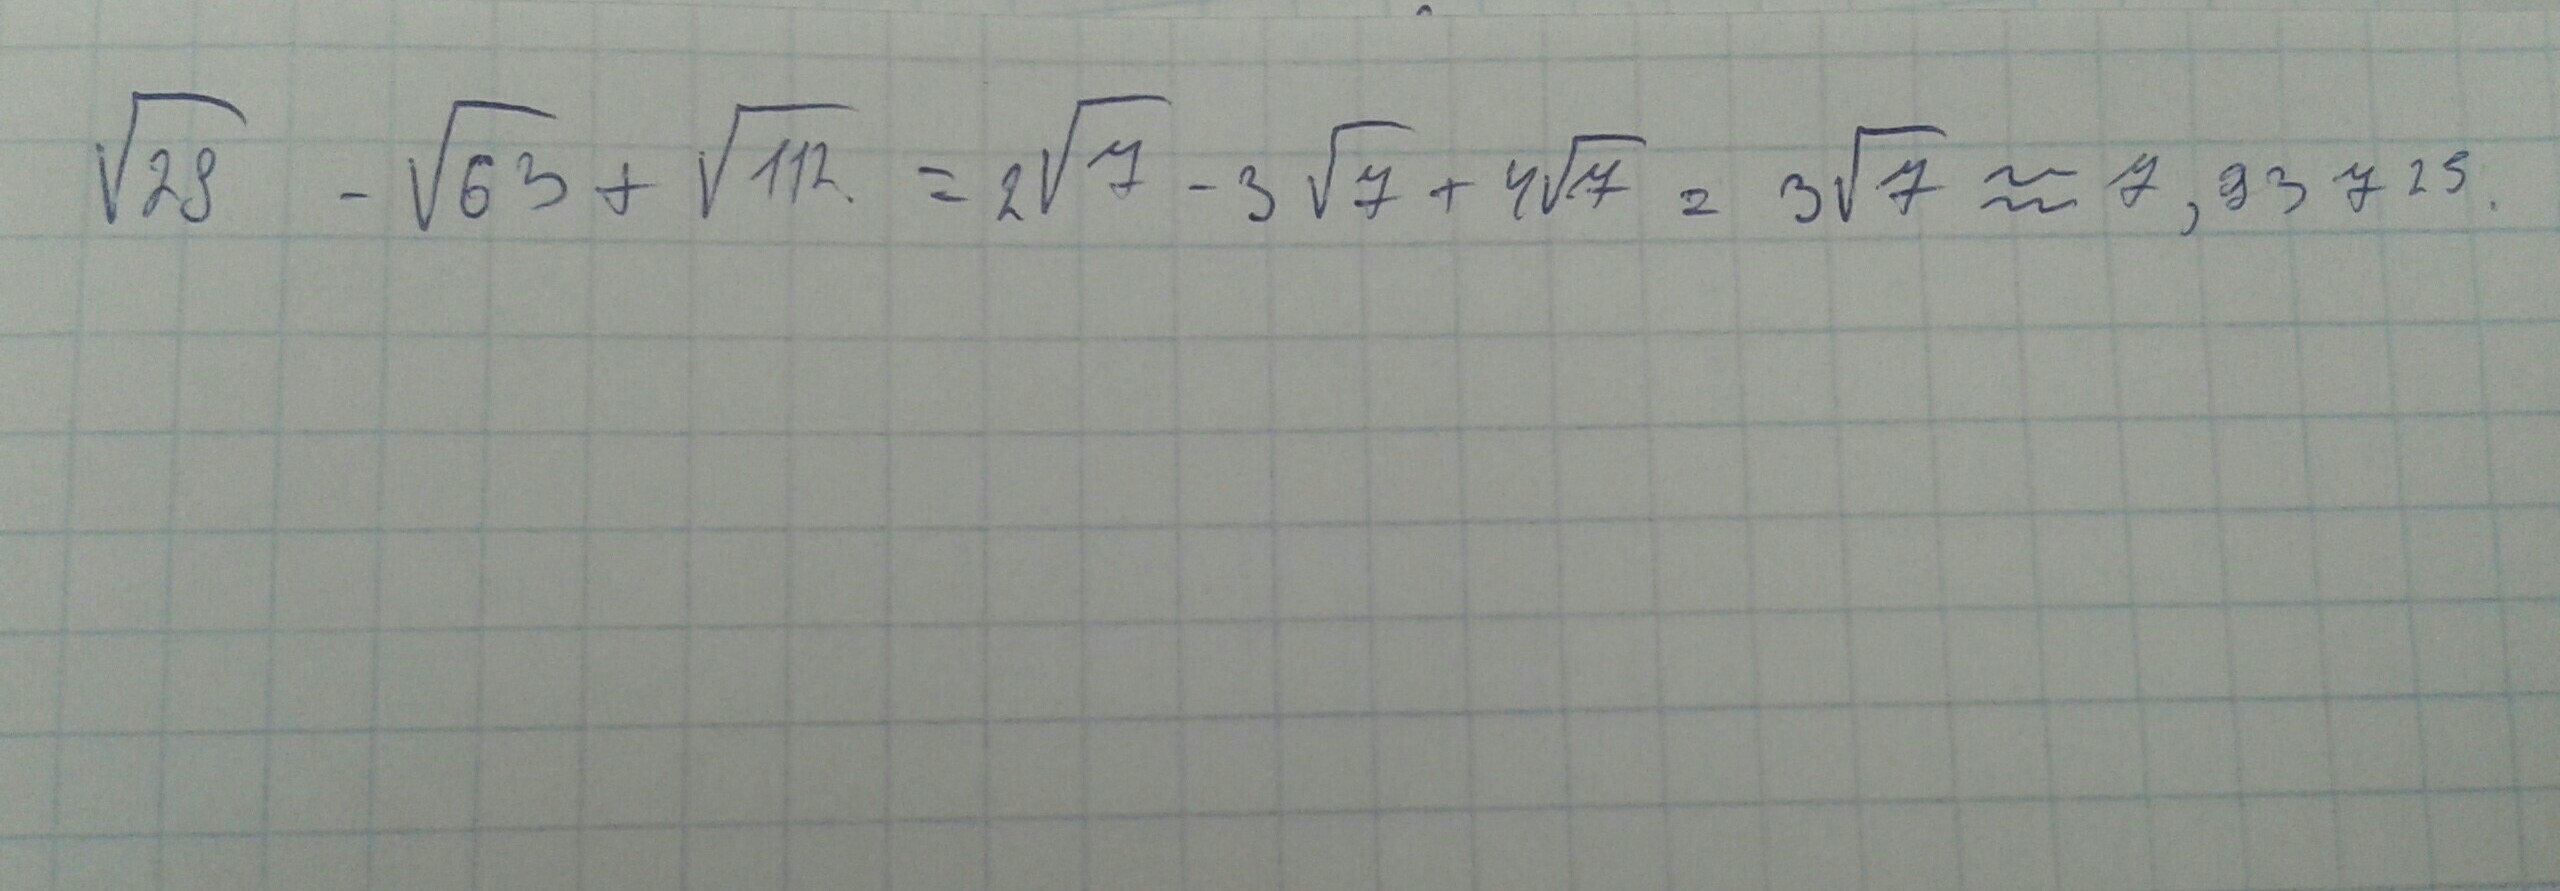 √28 - √63 + √112 = 2√7 - 3√7 + 4√7 = 3√7 ≈ 7,93725.